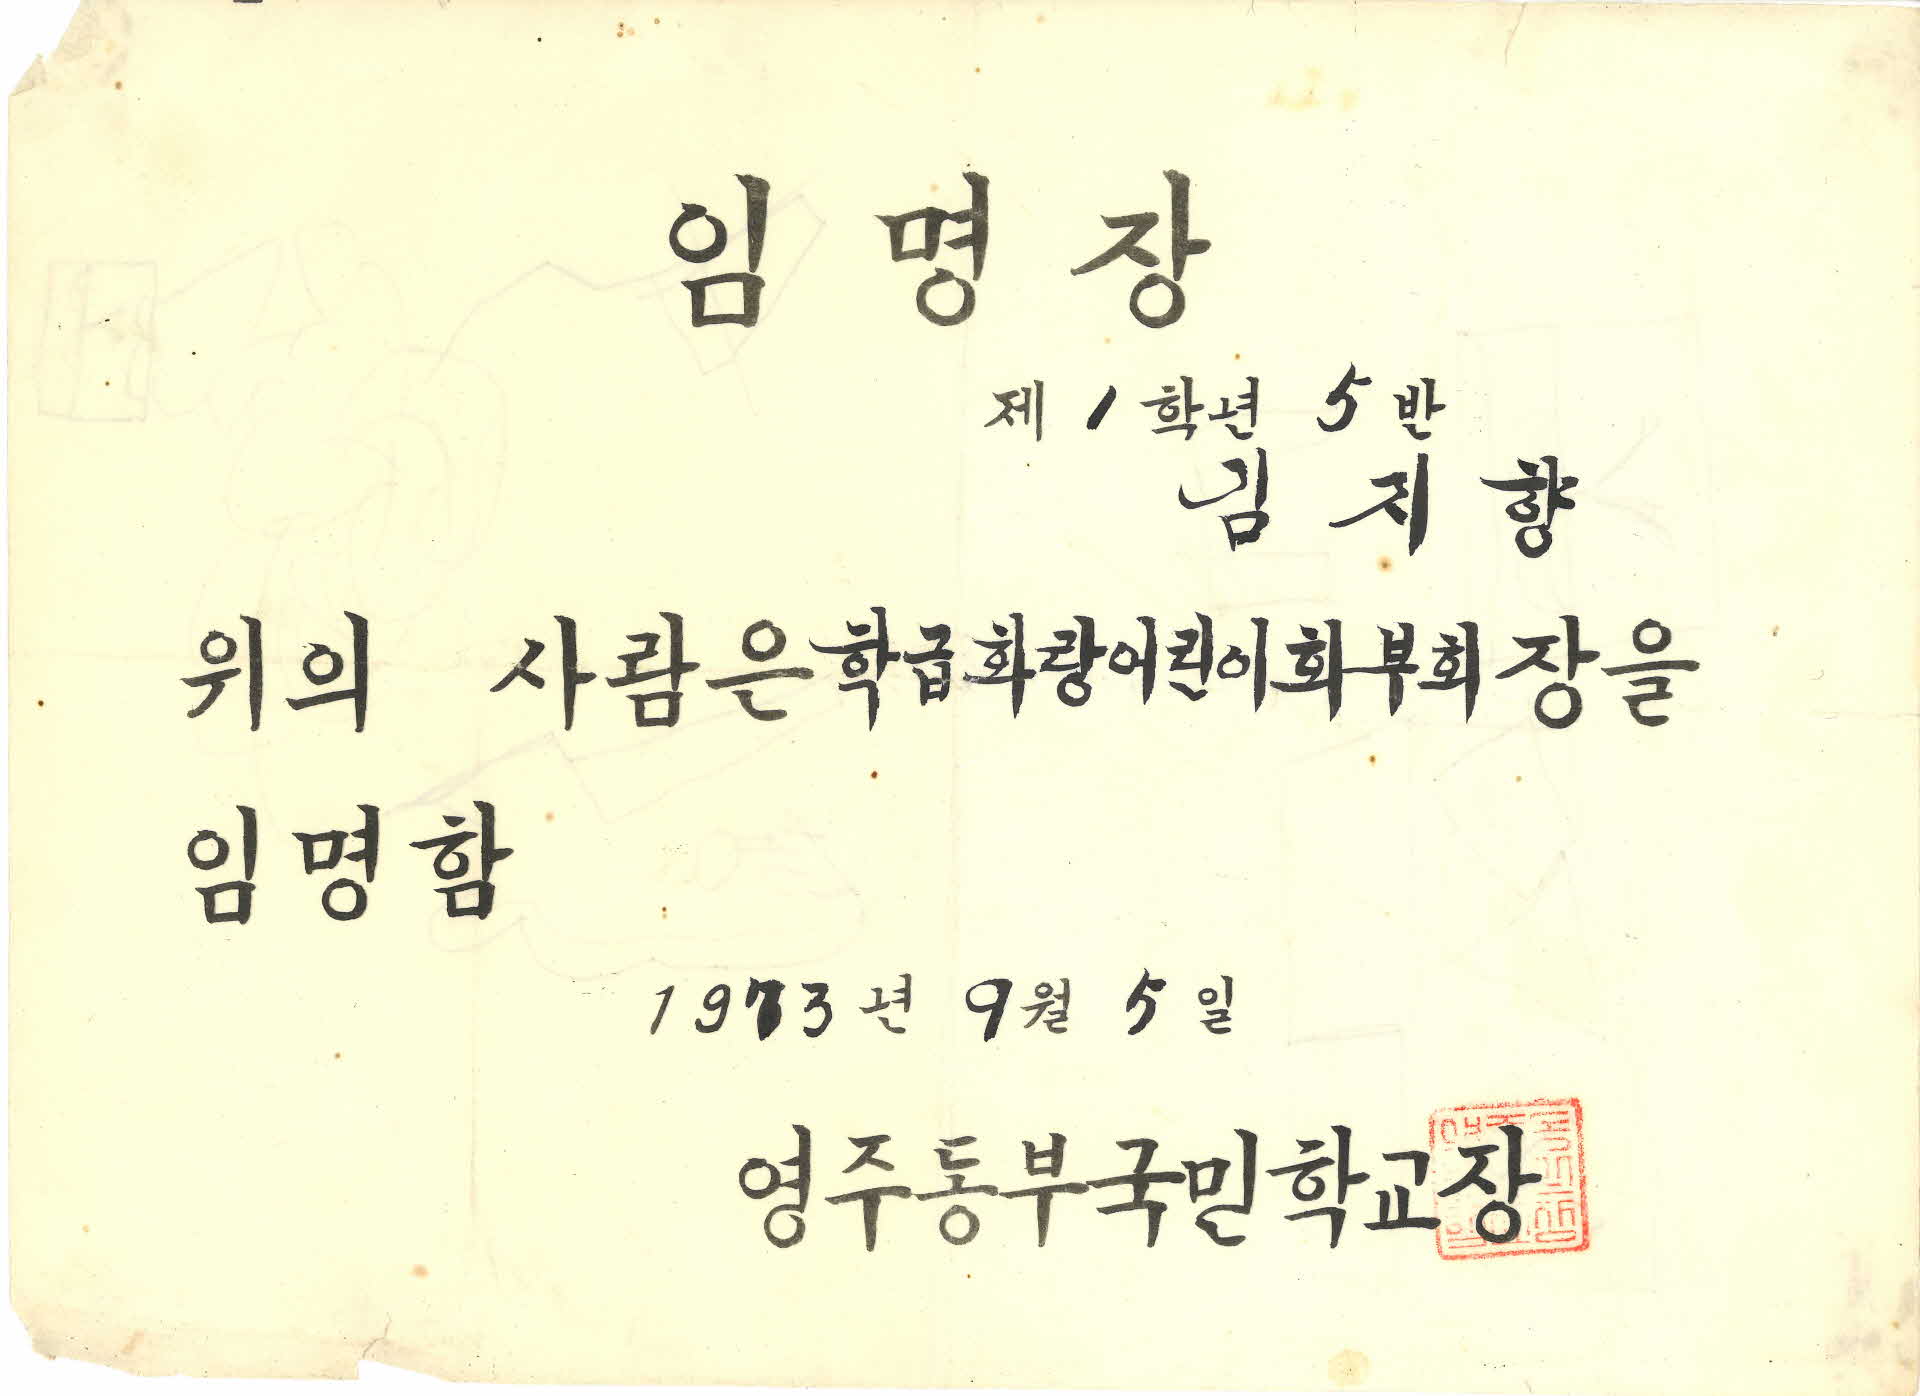 임명장
제 1 학년 5 반
김지향
위의 사람은 학급화랑어린이화부회장을
임명함
1973년 9월 5일
영주동부국민학교장